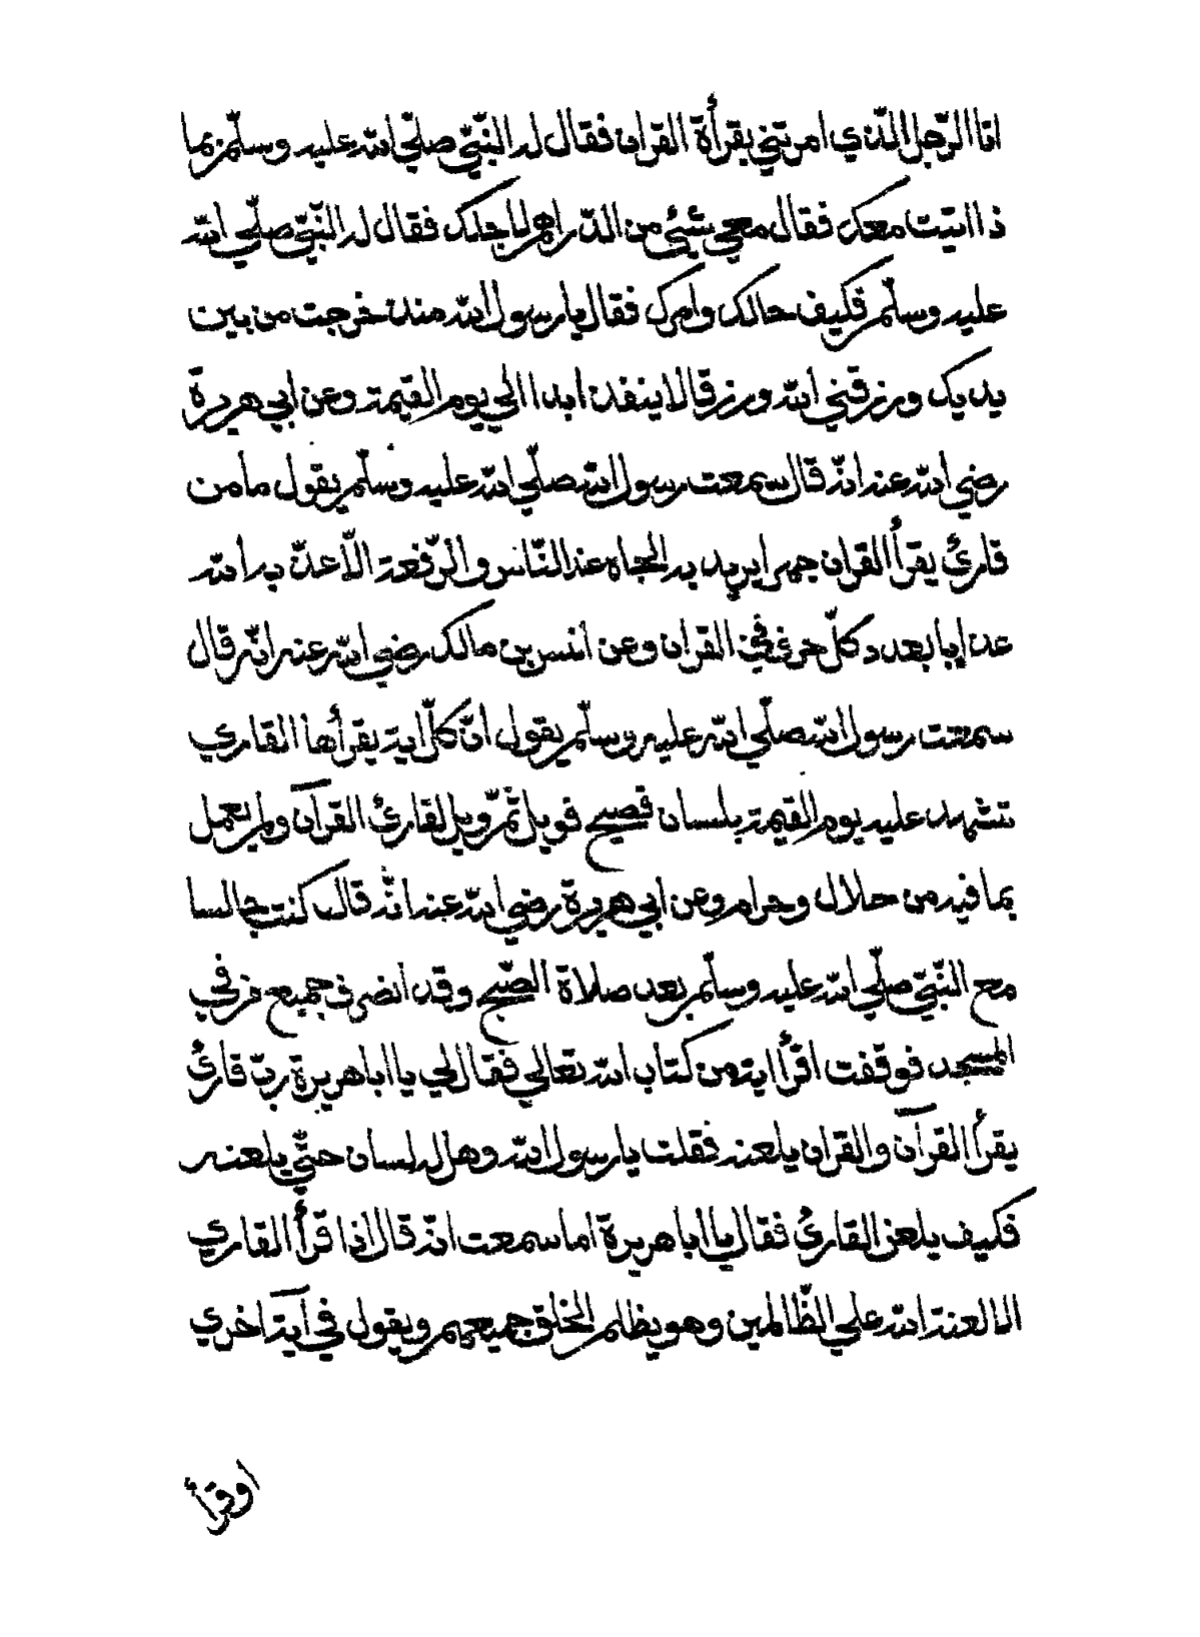 انا الرّجل الّذي امرتني بقرأة القران فقال له النّبيّ صلّي الله عليه وسلّم بما
ذا اتيت معك فقال معي شيئ من الدّراهم لاجلك فقال له النّبيّ صلّي الله
عليه وسلّم فكيف حالك وامرك فقال يا رسول الله منذ خرجت من بين
يديك ورزقني الله ورزقا لا ينفد ابدا الي يوم القيمة وعن ابي هريرة
رضي الله عنه انّه قال سمعت رسول الله صلّي الله عليه وسلّم يقول ما من
قارئ يقرأ القران جهرا يريد به الجاه عند النّاس والرّفعة الّا عذّ به الله
عذابا بعدد كلّ حرف في القران وعن انس بن مالك رضي الله عنه انّه قال
سمعت رسول الله صلّي الله عليه وسلّم يقول انّ كلّ اية يقرأها القاري
تشهد عليه يوم القيمة بلسان فصيح فويل ثمّ ويل لقارئ القرآن ولم يعمل
بما فيه من حلال وحرام وعن ابي هريرة رضي الله عنه انّه قال كنت جالسا
مع النّبيّ صلّي الله عليه وسلّم بعد صلاة الصّبح وقد انصرف جميع من في
المسجد فوقفت اقرأ اية من كتاب الله تعالي فقال لي يا ابا هريرة ربّ قارئ
يقرأ القرآن والقران يلعنه فقلت يا رسول الله وهل له لسان حتّي يلعنه
فكيف يلعن القارئ فقال يا ابا هريرة اما سمعت انّه قال اذا قرأ القاري
الا لعنة الله علي الظّالمين وهو يظلم الخلق جميعهم ويقول في آية اخري
اوقرأ